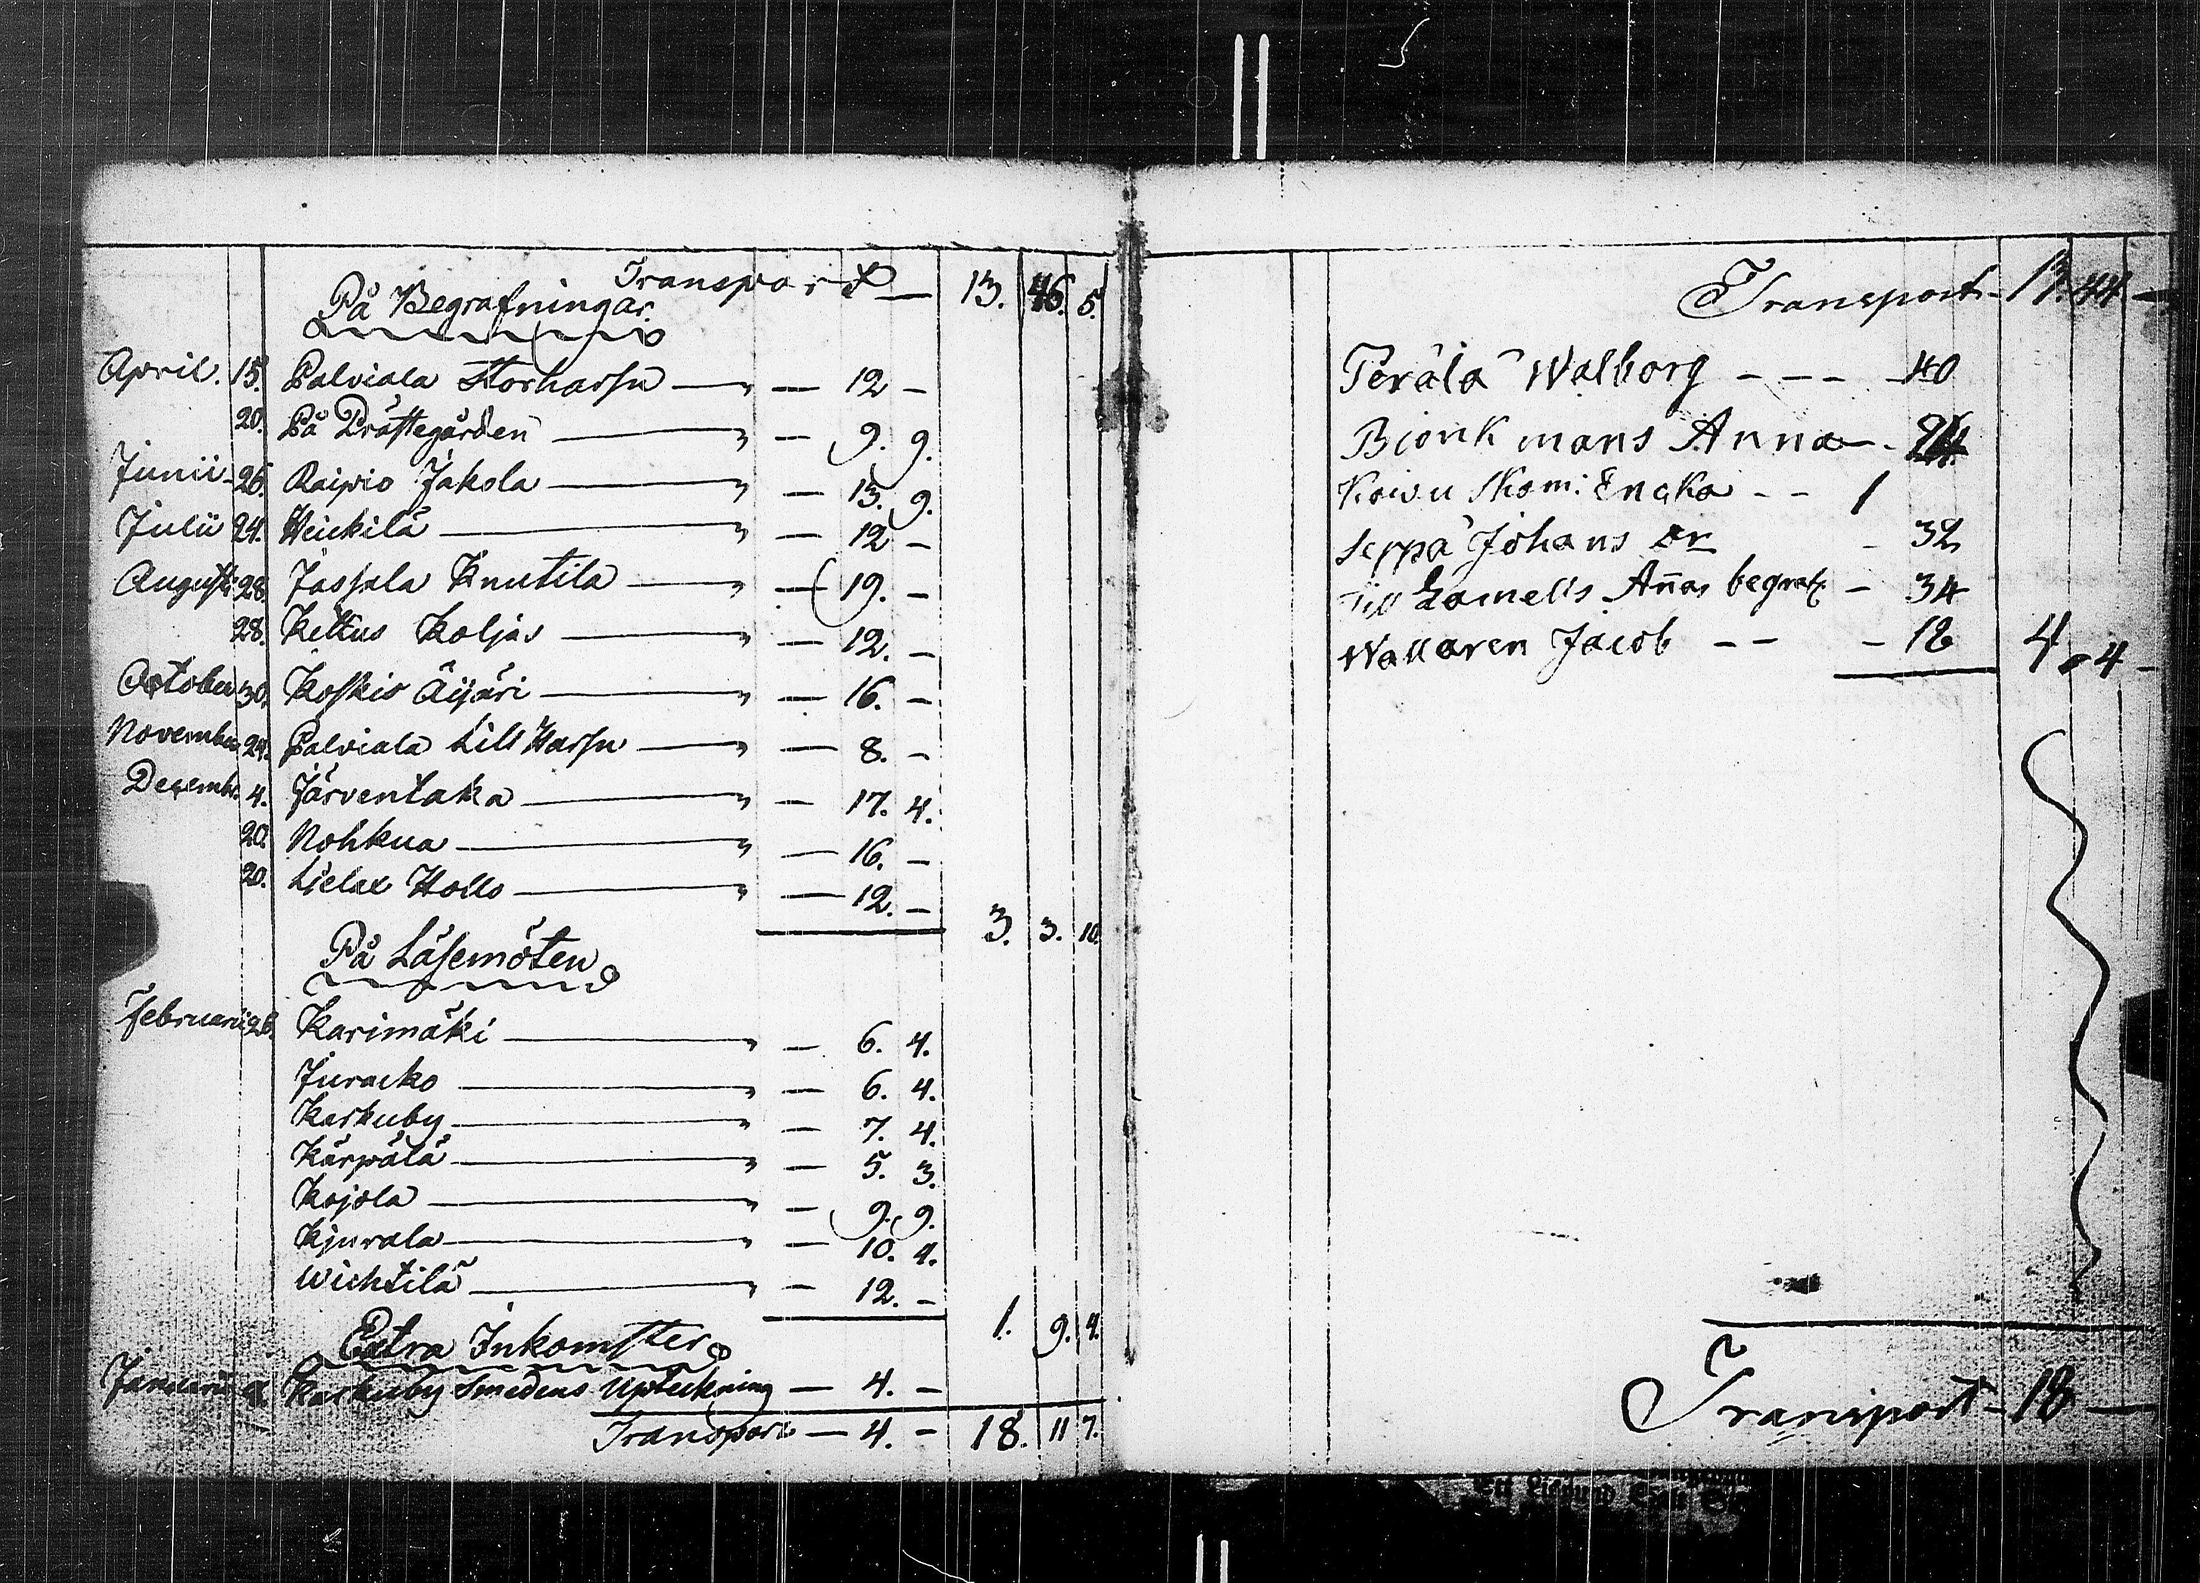 Transport — 13. 46. 5.
På Begrafningar.
April. 15. Palviala Storhassu — 12 —
20. På Prästegården — 9. 9.
Junii 26. Raipio Jakola — 13. 9.
Julii 24. Heickilä — 12 —
Augusti 28. Jassala Knutila — 19. —
28. Kittus Koljas — 12. —
October 30. Koskis Äijäri — 16. —
November 24. Palviala Lill Hassu — 8. —
Decemb. 4. Järventaka — 17. 4.
20. Nohkua — 16. —
20. Lielax Hollo — 12. —
3. 3. 10.
På Läsemöten
Februarii 26. Karimäki — 6. 4.
Juracko — 6. 4.
Karkuby — 7. 4.
Kärpälä — 5. 3.
Kojola — 9. 9.
Kjurala — 10. 4.
Wichtilä — 12. —
1. 9. 4.
Extra Inkomster
Januarii Karkuby Smedens Upteckning — 4. —
Transport — 4. — 18. 11 7.
Transport - 13. 44 —
Terälä Walborg - - - 40
Biörkmans Anna - 24
Koivu Skom: Encka - - 1
Seppä Johans - 32
Till Lamelis Annas begrafn - 34
Wallaren Jacob - - - 18 4 " 4 -
Transport - 18 —